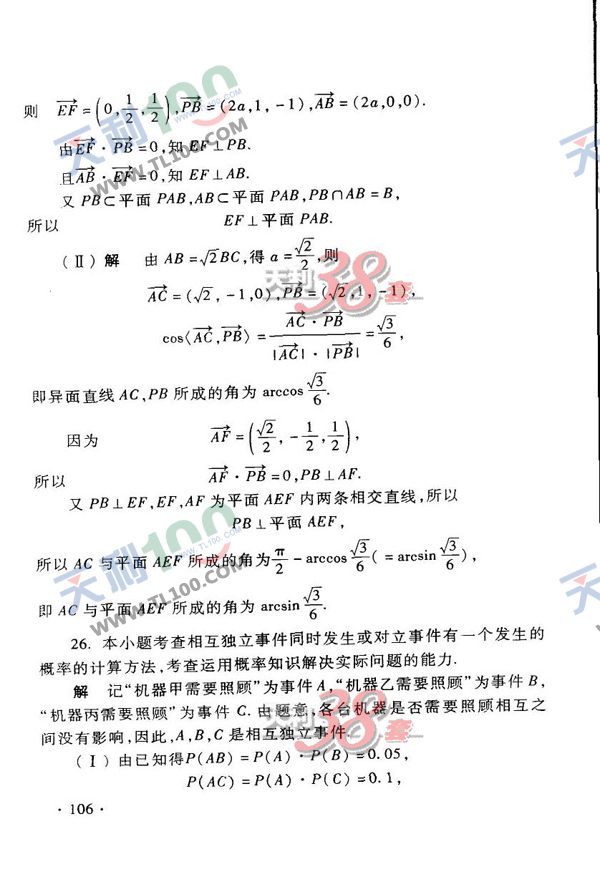 则 $\overrightarrow{EF}=\left(0,\frac{1}{2},\frac{1}{2}\right),\overrightarrow{PB}=(2a,1,-1),\overrightarrow{AB}=(2a,0,0).$
由$\overrightarrow{EF}\cdot\overrightarrow{PB}=0$,知 EF⊥PB.
且$\overrightarrow{AB}\cdot\overrightarrow{EF}=0$,知 EF⊥AB.
又 PB⊂平面 PAB,AB⊂平面 PAB,PB∩AB=B,
所以 EF⊥平面 PAB.
(Ⅱ) 解 由 $AB=\sqrt{2}BC$,得 $a=\frac{\sqrt{2}}{2}$,则
$\overrightarrow{AC}=(\sqrt{2},-1,0),\overrightarrow{PB}=(\sqrt{2},1,-1),$
$\cos\langle\overrightarrow{AC},\overrightarrow{PB}\rangle=\frac{\overrightarrow{AC}\cdot\overrightarrow{PB}}{|\overrightarrow{AC}|\cdot|\overrightarrow{PB}|}=\frac{\sqrt{3}}{6},$
即异面直线 AC,PB 所成的角为 $\arccos\frac{\sqrt{3}}{6}.$
因为 $\overrightarrow{AF}=\left(\frac{\sqrt{2}}{2},-\frac{1}{2},\frac{1}{2}\right),$
所以 $\overrightarrow{AF}\cdot\overrightarrow{PB}=0$,PB⊥AF.
又 PB⊥EF,EF,AF 为平面 AEF 内两条相交直线,所以
PB⊥平面 AEF,
所以 AC 与平面 AEF 所成的角为 $\frac{\pi}{2}-\arccos\frac{\sqrt{3}}{6}(=\arcsin\frac{\sqrt{3}}{6}),$
即 AC 与平面 AEF 所成的角为 $\arcsin\frac{\sqrt{3}}{6}.$
26. 本小题考查相互独立事件同时发生或对立事件有一个发生的
概率的计算方法,考查运用概率知识解决实际问题的能力.
解 记“机器甲需要照顾”为事件 A,“机器乙需要照顾”为事件 B,
“机器丙需要照顾”为事件 C.由题意,各台机器是否需要照顾相互之
间没有影响,因此,A,B,C 是相互独立事件.
(Ⅰ) 由已知得P(AB)=P(A)·P(B)=0.05,
P(AC)=P(A)·P(C)=0.1,
·106·
天利100
WWW.TL100.COM
天利38套
天利100
WWW.TL100.COM
天利38套